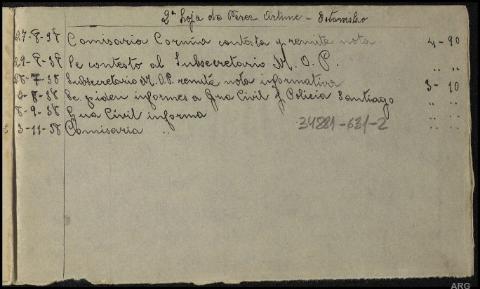 2ª Hoja de Perez Artime - Estanislao
27-8-38 Comisaria Coruña contesta y remite nota 4-90
29-8-38 Se contesto al Subsecretario M. O. P. " "
28-7-38 Subsecretario M. O. P. remite nota informativa 3-10
9-8-38 Se piden informes a Gua Civil y Policia Santiago " "
8-9-38 Gua Civil informa " "
3-11-38 Comisaria " " "
34281-631-2
ARG